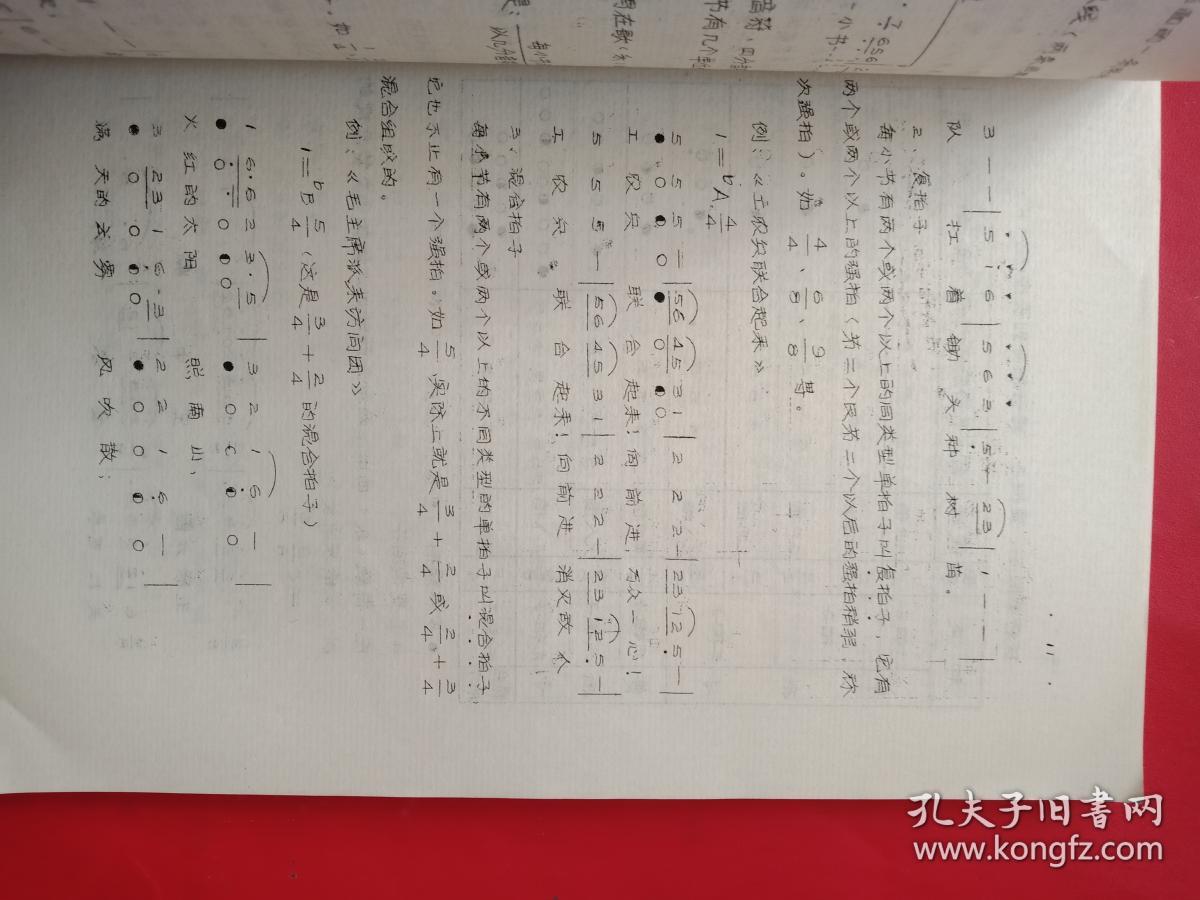 11
3 — — | 5 i 6 | 5 6 3 | 5 — 23 | 1 — — |
队 扛 着 锄 头 种 树 苗。
2、复拍子
每小节有两个或两个以上的同类型单拍子叫复拍子，它有
两个或两个以上的强拍（第二个及第二个以后的强拍稍弱，称
次强拍）。如 4/4、6/8、9/8 等。
例：《工农兵联合起来》
1=bA 4/4
5 5 5 — | 56 45 3 1 | 2 2 2 — | 23 12 5 — |
● 0 ◐ 0 ● 0 ◐ 0
工 农 兵 联 合 起来！向 前 进，万众 一 心！
5 5 5 — | 56 45 3 1 | 2 2 2 — | 23 12 5 — |
工 农 兵 联 合 起来！向 前 进 消灭敌人
3、混合拍子
每小节有两个或两个以上的不同类型的单拍子叫混合拍子，
它也不止有一个强拍。如 5/4 实际上就是 3/4 + 2/4 或 2/4 + 3/4
混合组成的。
例：《毛主席派来访问团》
1=bB 5/4（这是 3/4 + 2/4 的混合拍子）
1 6·6 2 3·5 | 3 2 1 6 — |
● 0 0 ◐ 0 ● 0 0 ◐ 0
火 红的太阳 照 南 山，
3 23 1 6·3 | 2 2 1 6 — |
● 0 0 ◐ 0 ● 0 0 ◐ 0
满 天的云雾 风 吹 散；
孔夫子旧书网
www.kongfz.com